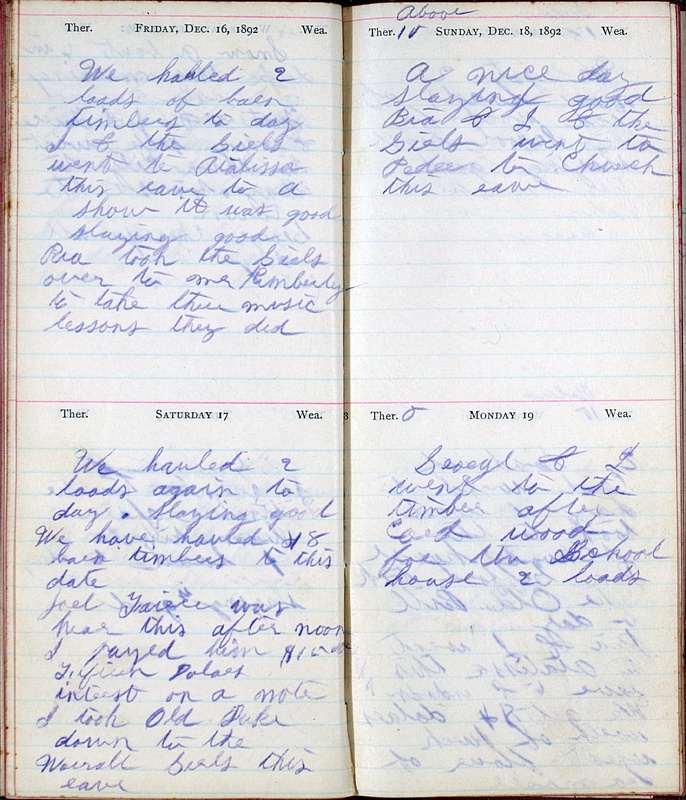 Ther. FRIDAY, DEC. 16, 1892 Wea.
We hauled 2
loads of barn
timbers to day
I & the Girls
went to Atalissa
this eave to a
show it was good
slaying good
Bra took the Girls
over to mr Kimberly
to take their music
lessons they did
Ther. SATURDAY 17 Wea.
We hauled 2
loads again to
day. slaying good
We have hauled 18
barn timbers to this
date
Joel was
hear this after noon
I payed him
Dolars
intrest on a note
I took Old Duke
down to the
Worrall Girls this
eave
Above
Ther. 10 SUNDAY, DEC. 18, 1892 Wea.
A nice day
slaying good
Bra & I & the
Girls went to
to Church
this eave
3
Ther. 0 MONDAY 19 Wea.
& I
went to the
timber after
Cord wood
for the School
house 2 loads